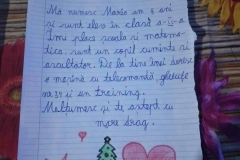 Mă numesc Maria am 8 ani
și sunt elevă în clasa a-II-a
Îmi place școala și matema-
tica, sunt un copil cuminte și
ascultător. De la tine îmi doresc
o mașină cu telecomandă, ghetuțe
nr 33 și un trening.
Mulțumesc și te aștept cu
mare drag.